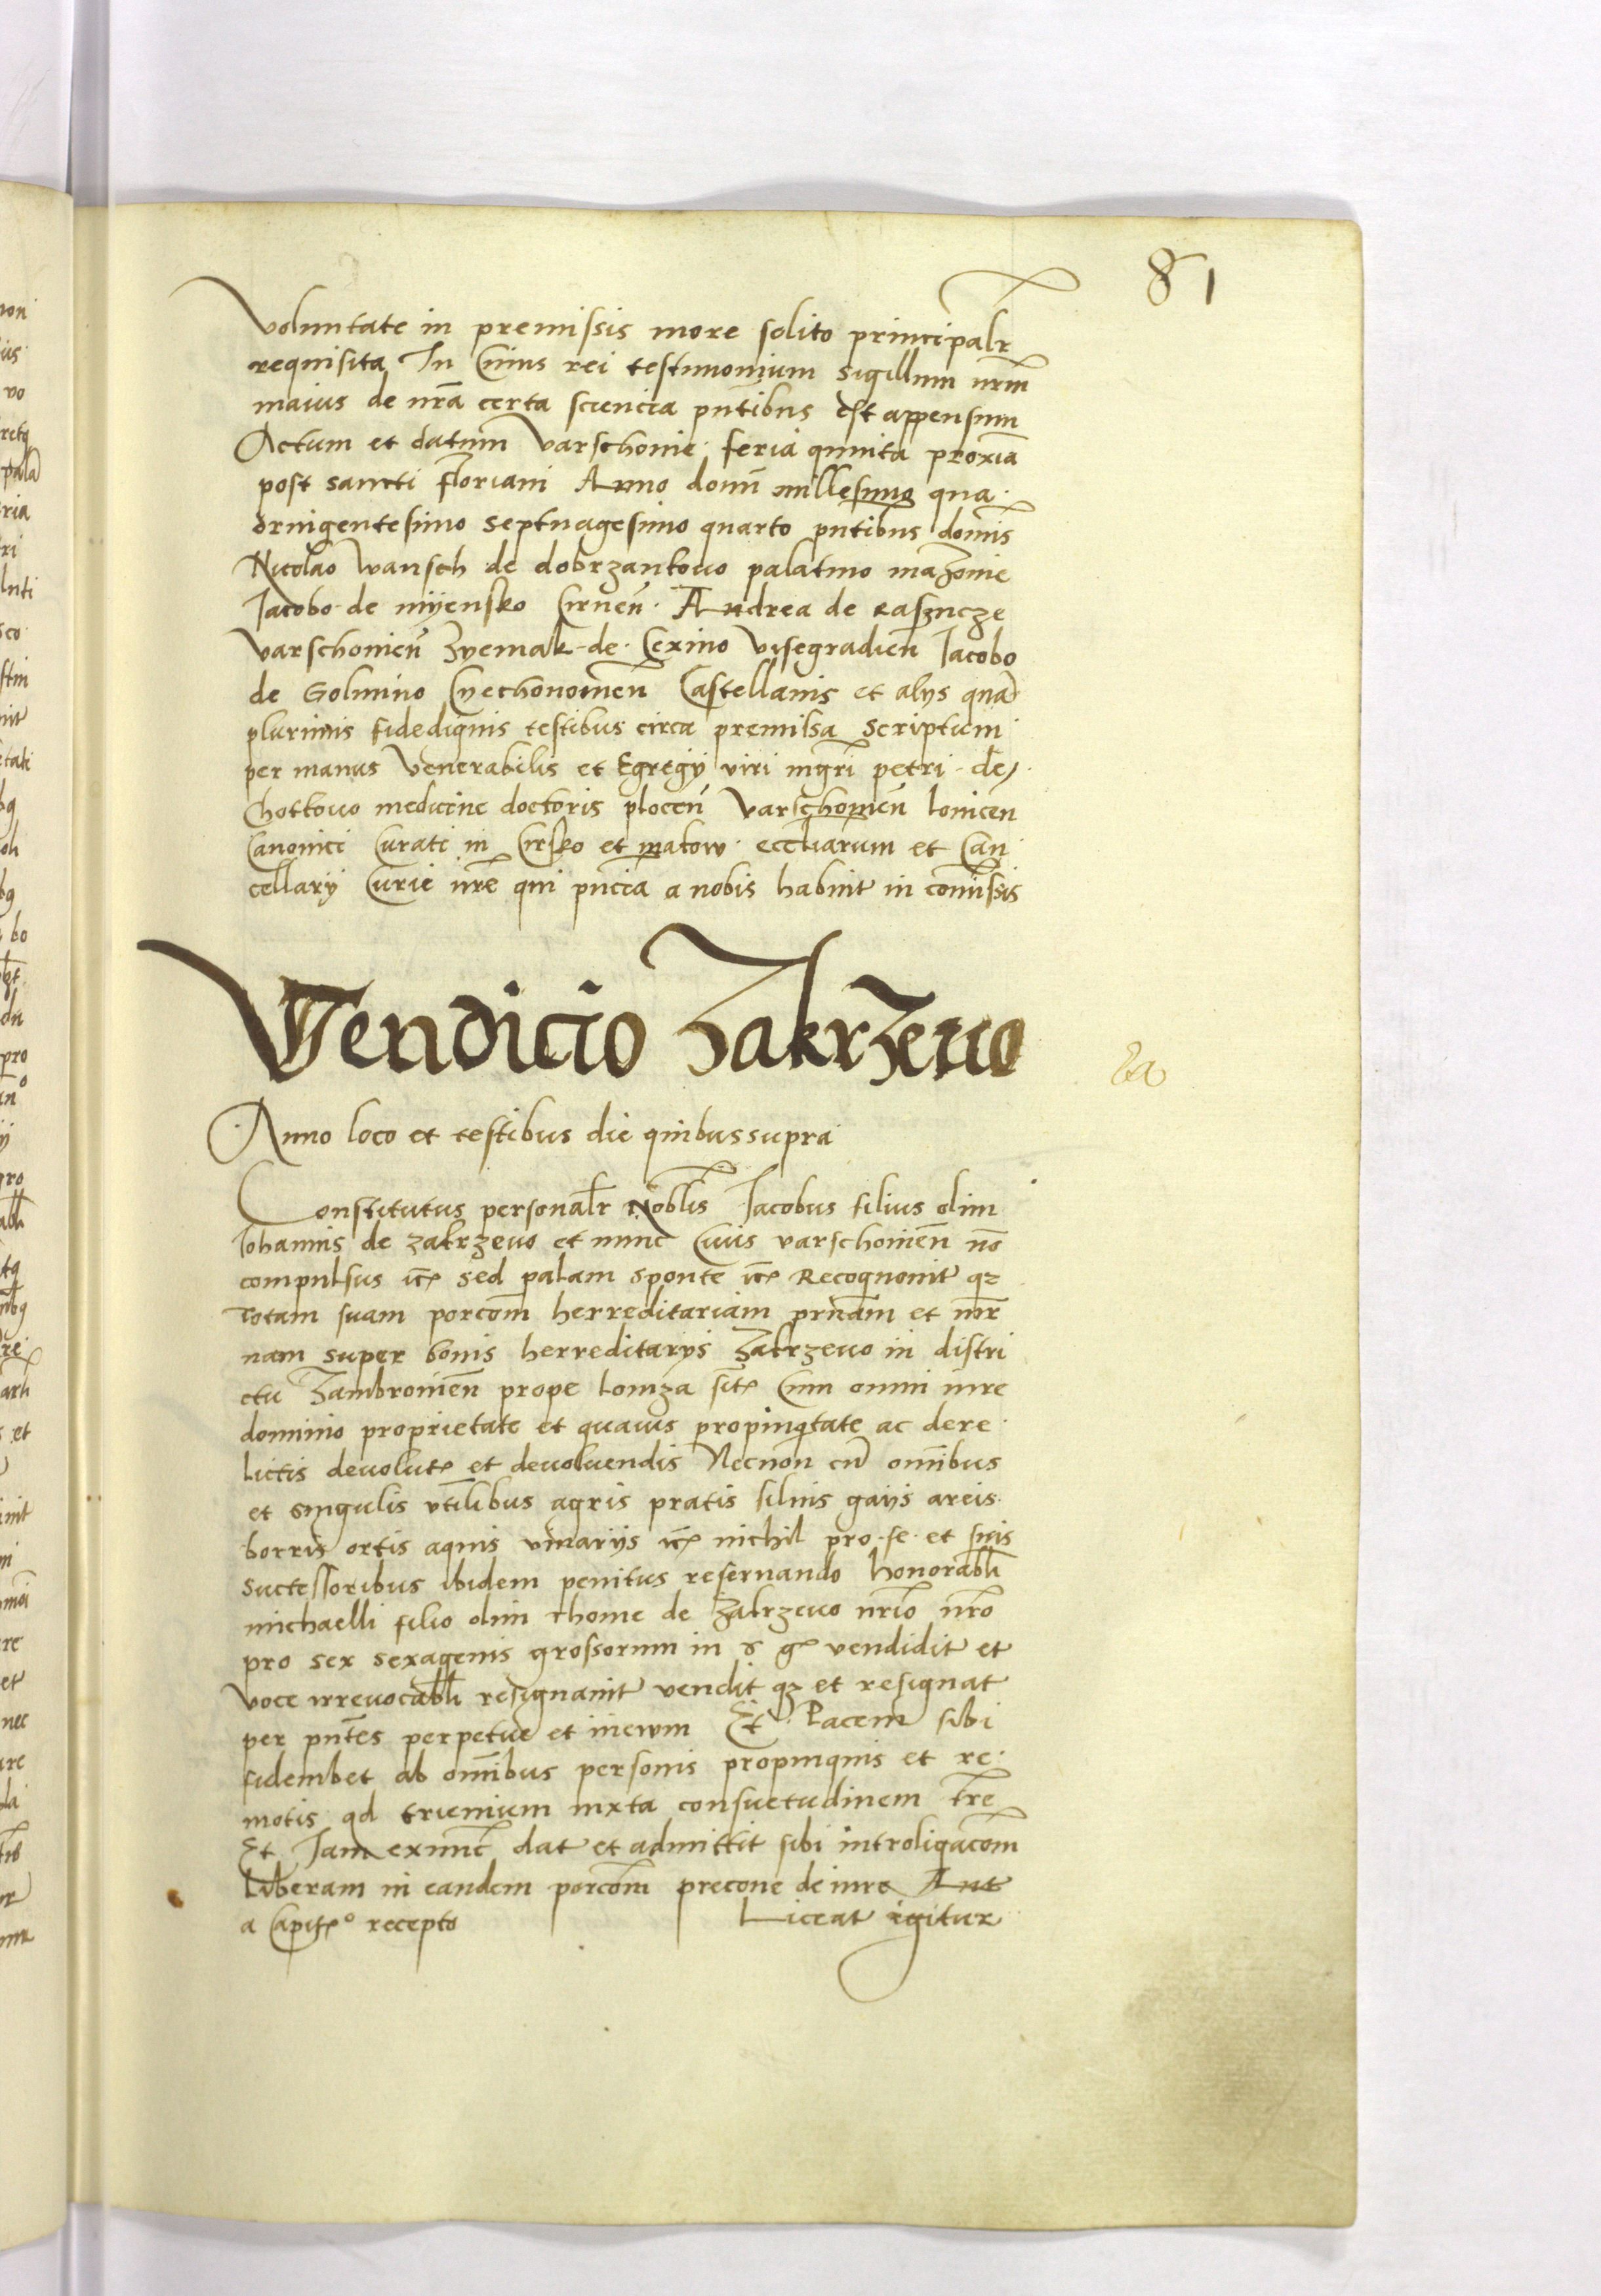 81
voluntate in premissis more solito principalr
requisita In Cuius rei testimonium sigillum nrm
maius de nra certa sciencia pntibus est appensum
Actum et datum Varschouie feria quinta proxia
post sancti floriani Anno domi millesimo qua
dringentesimo septuagesimo quarto pntibus domis
Nicolao Wansch de dobrzankouo palatino mazouie
Iacobo de myensko Cirnen Andrea de rasincze
Varschouien Zyemak de Cexino Visegradien Iacobo
de Golmino Cyechonomen Castellanis et alys qua
plurimis fidedignis testibus circa premissa Scriptum
per manus Venerabilis et Egregij viri mgri petri de
Chotkouo medicine doctoris plocen Varschouien lonicen
Canonici Curati in Cirsko et makow ecctiarum et Can
cellarij Curie nre qui pncia a nobis habuit in comissis
Vendicio Zakrzeuo
Za
Anno loco et testibus die quibus supra
Constitutus personalr Noblis Iacobus filius olim
Iohannis de zakrzeuo et nunc Ciuis varschouien no
compulsus itc sed palam sponte itc Recognouit qz
totam suam porcom herreditariam prnam et mr
nam super bonis herreditarijs Zakrzeuo in distri
ctu Zambrouien prope lomza sit Cum omni iure
dominio proprietate et quauis propinqtate ac dere
lictis deuolut et deuoluendis Necnon cu omibus
et singulis vtilibus agris pratis siluis gaijs areis
borris ortis aquis vinarijs itc nichil pro se et suis
successoribus ibidem penitus reseruando honorabli
michaelli filio olim thome de Zakrzeuo nrio nro
pro sex sexagenis grossorum in s g vendidit et
voce irreuocabli resignauit vendit qz et resignat
per pntes perpetue et ineuum Et Pacem sibi
fidembet ab omibus personis propinquis et re
motis ad trienium iuxta consuetudinem tre
Et Iam exnunc dat et admittit sibi introligacom
liberam in eandem porcom precone de iure Aut
a Capit° recepto Liceat igitur